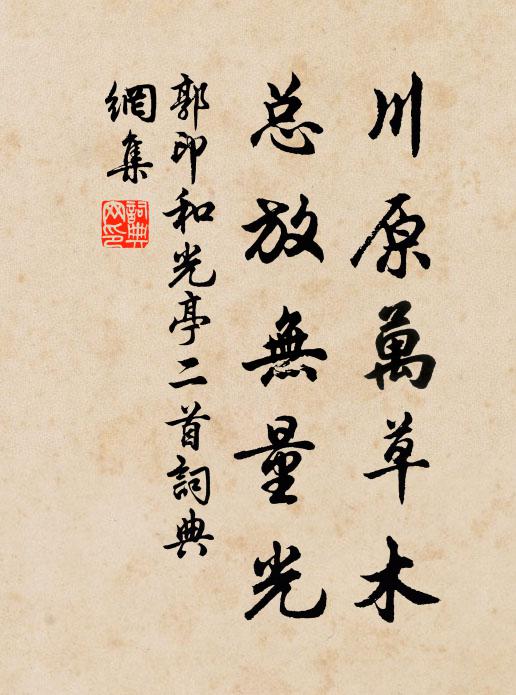 川原萬草木
总放無量光
郭印和光亭二首詞典
網集
詞典
网印